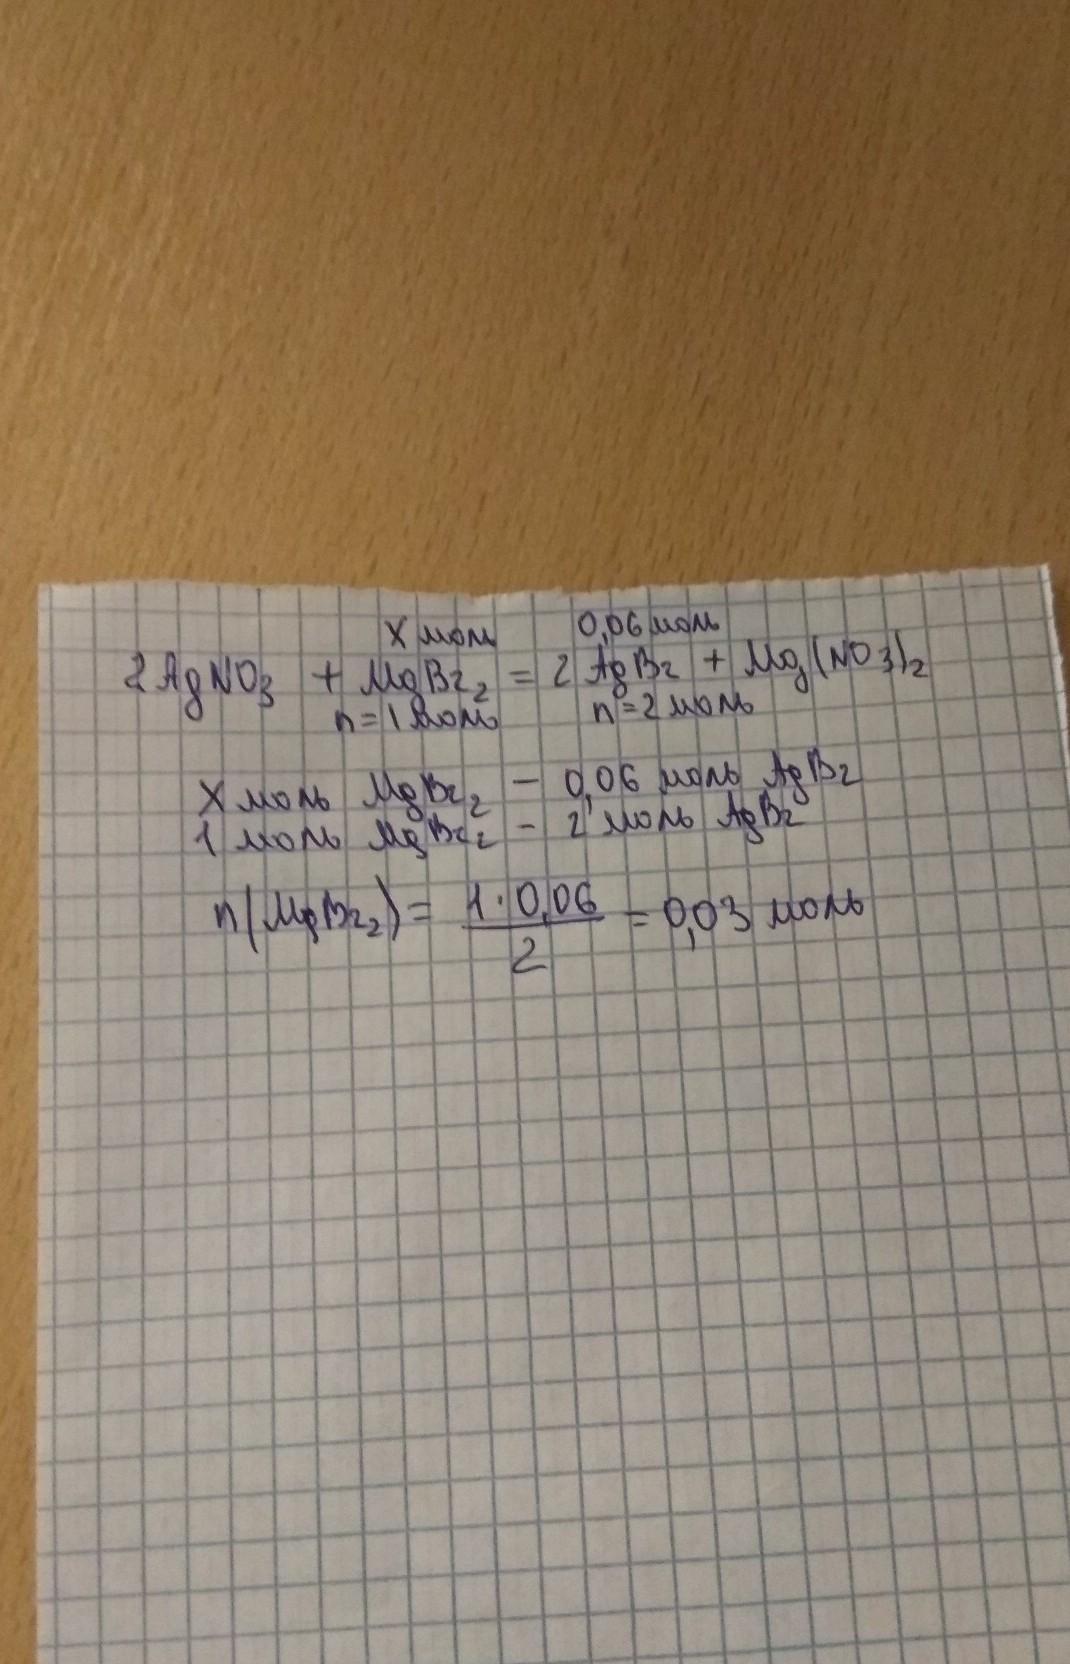 x моль 0,06 моль
2AgNO3 + MgBr2 = 2AgBr + Mg(NO3)2
n=1 моль n=2 моль
x моль MgBr2 - 0,06 моль AgBr
1 моль MgBr2 - 2 моль AgBr
n(MgBr2) = 1·0,06 / 2 = 0,03 моль